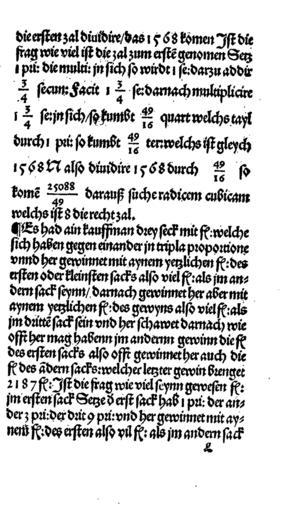 die ersten zal diuidire/das 1568 komen Ist die
frag wie viel ist die zal zum erstē genomen Setz
1 pri: die multi: jn sich so wirdt 1 se: darzu addir
3/4 secun: Facit 1 3/4 se: darnach multiplicire
1 3/4 se: jn sich/so kumbt 49/16 quart welchs tayl
durch 1 pri: so kumbt 49/16 ter: welchs ist gleych
1568 N also diuidire 1568 durch 49/16 so
komē 25088/49 darauß suche radicem cubicam
welchs ist 8 die recht zal.
¶Es had ain kauffman drey seck mit fl: welche
sich haben gegen einander in tripla proportione
vnnd her gewinnet mit aynem yetzlichen fl: des
ersten oder kleinsten sacks also viel fl: als jm an-
dern sack seynn/ darnach gewinnet her aber mit
aynem yetzlichen fl: des gewyns also viel fl: als
jm drittē sack sein vnd her schawet darnach wie
offt her mag habenn jm andernn gewinn die fl:
des ersten sacks also offt gewinnet her auch die
fl: des ādern sacks: welcher letzter gewin brenget
2187 fl: Ist die frag wie viel seynn gewesen fl:
jm ersten sack Setze d erst sack hab 1 pri: der an-
der 3 pri: der drit 9 pri: vnd her gewinnet mit ay-
nem fl: des ersten also vil fl: als jm andern sack